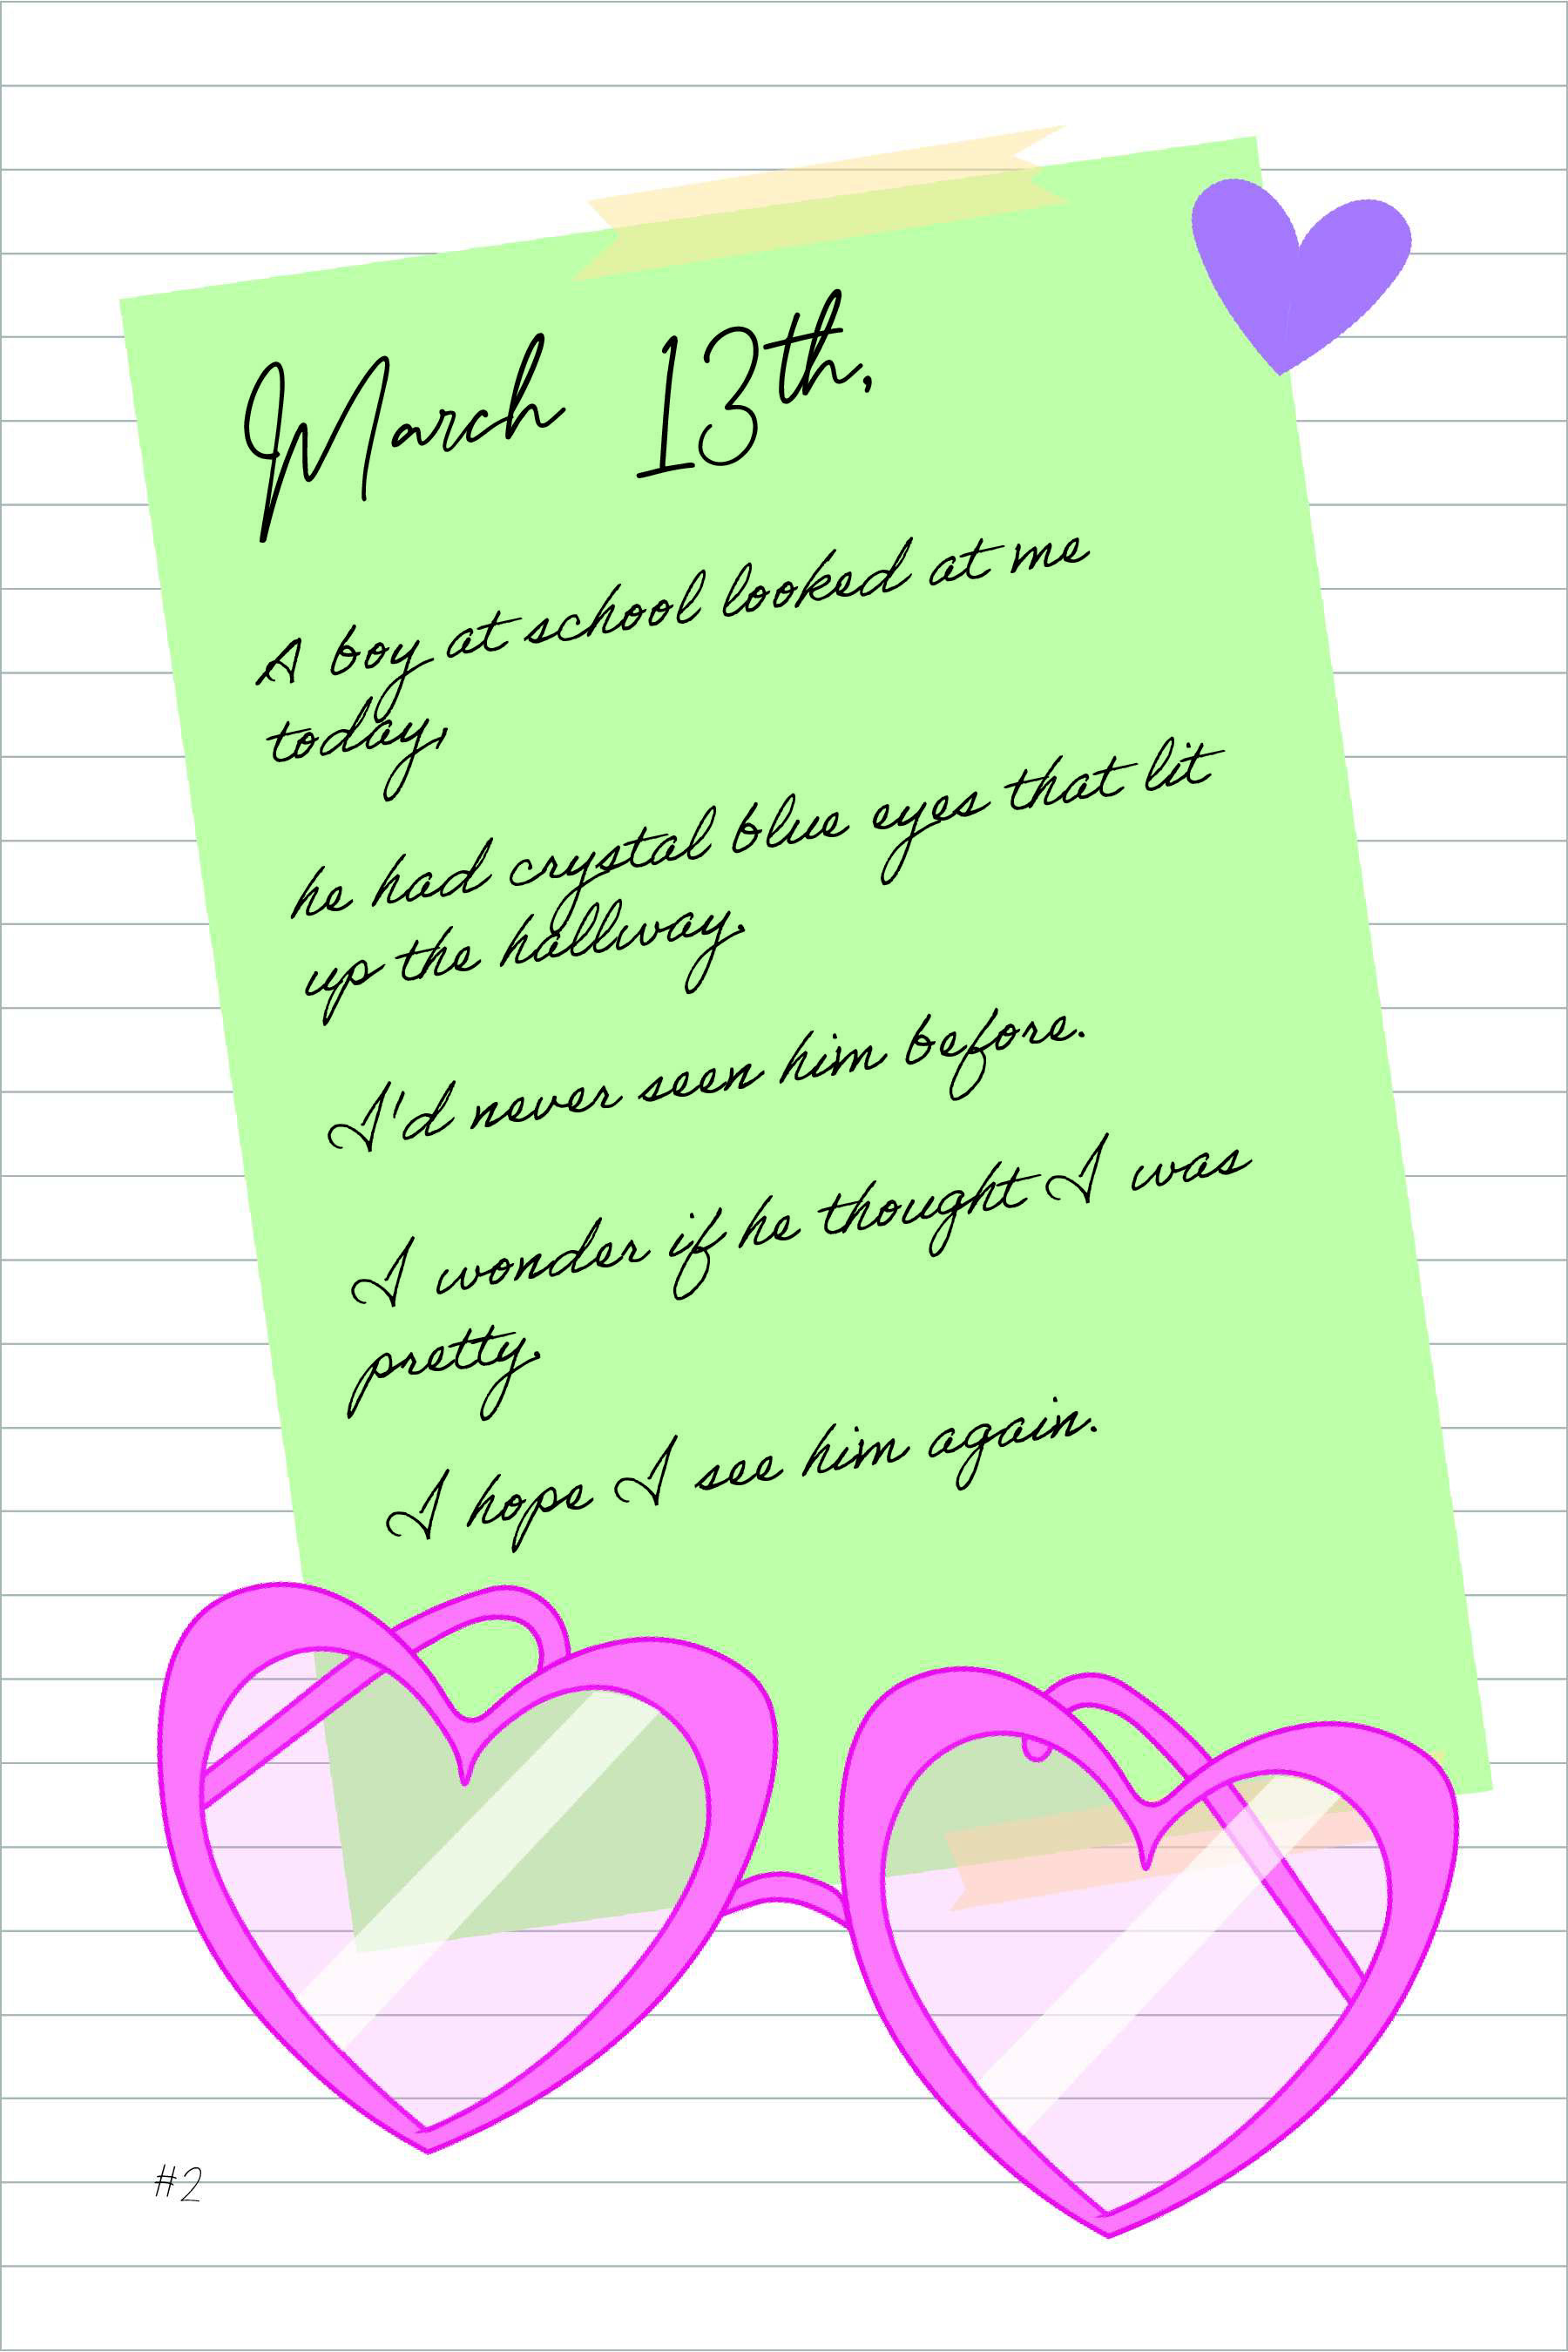 March 13th,
A boy at school looked at me
today,
he had crystal blue eyes that lit
up the hallway.
I'd never seen him before.
I wonder if he thought I was
pretty.
I hope I see him again.
#2